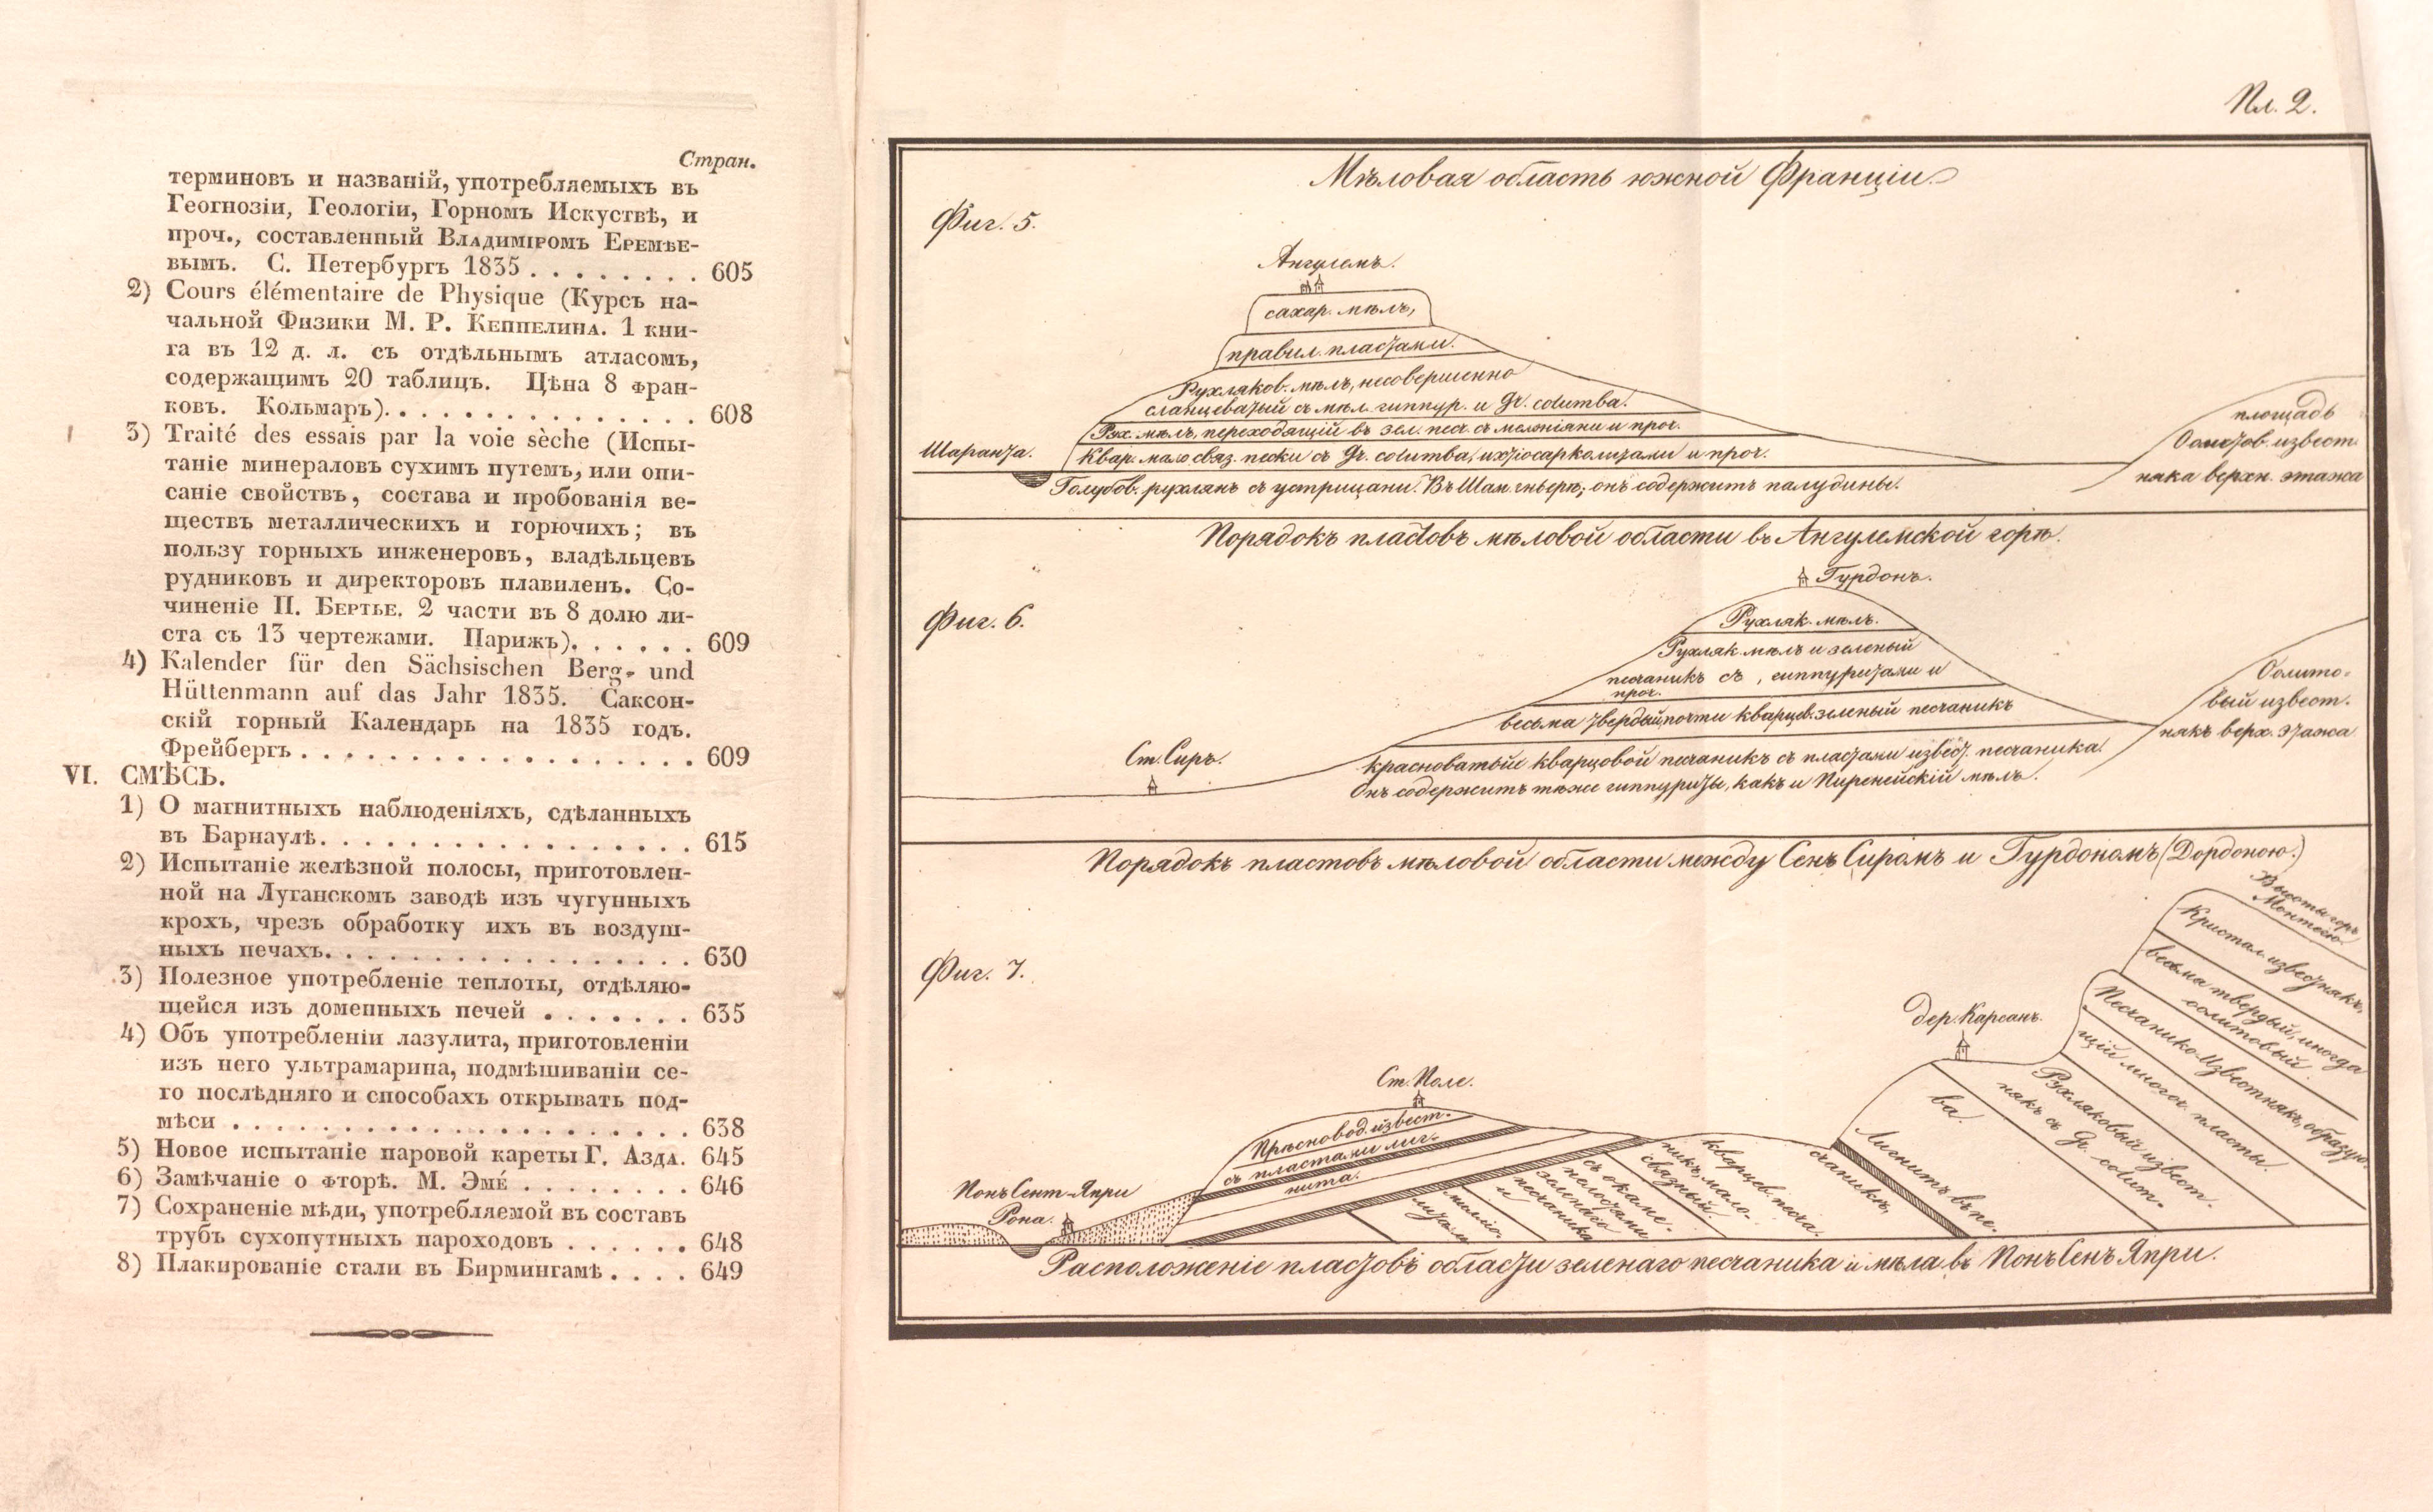 Стран.
терминовъ и названій, употребляемыхъ въ
Геогнозіи, Геологіи, Горномъ Искуствѣ, и
проч., составленный Владиміромъ Еремѣе-
вымъ. С. Петербургъ 1835 . . . . . . . . 605
2) Cours élémentaire de Physique (Курсъ на-
чальной Физики М. Р. Кеппелина. 1 кни-
га въ 12 д. л. съ отдѣльнымъ атласомъ,
содержащимъ 20 таблицъ. Цѣна 8 фран-
ковъ. Кольмаръ). . . . . . . . . . . . . . . 608
3) Traité des essais par la voie sèche (Испы-
таніе минераловъ сухимъ путемъ, или опи-
саніе свойствъ, состава и пробованія ве-
ществъ металлическихъ и горючихъ; въ
пользу горныхъ инженеровъ, владѣльцевъ
рудниковъ и директоровъ плавиленъ. Со-
чиненіе П. Бертье. 2 части въ 8 долю ли-
ста съ 13 чертежами. Парижъ). . . . . . 609
4) Kalender für den Sächsischen Berg- und
Hüttenmann auf das Jahr 1835. Саксон-
скій горный Календарь на 1835 годъ.
Фрейбергъ . . . . . . . . . . . . . . . . . . 609
VI. СМѢСЬ.
1) О магнитныхъ наблюденіяхъ, сдѣланныхъ
въ Барнаулѣ. . . . . . . . . . . . . . . . . 615
2) Испытаніе желѣзной полосы, приготовлен-
ной на Луганскомъ заводѣ изъ чугунныхъ
крохъ, чрезъ обработку ихъ въ воздуш-
ныхъ печахъ. . . . . . . . . . . . . . . . . 630
3) Полезное употребленіе теплоты, отдѣляю-
щейся изъ доменныхъ печей . . . . . . . 635
4) Объ употребленіи лазулита, приготовленіи
изъ него ультрамарина, подмѣшиваніи се-
го послѣдняго и способахъ открывать под-
мѣси . . . . . . . . . . . . . . . . . . . . . 638
5) Новое испытаніе паровой кареты Г. Азда. 645
6) Замѣчаніе о фторѣ. М. Эмé . . . . . . . . 646
7) Сохраненіе мѣди, употребляемой въ составъ
трубъ сухопутныхъ пароходовъ . . . . . . 648
8) Плакированіе стали въ Бирмингамѣ . . . . 649
Пл. 2.
Мѣловая область южной Франціи.
Фиг. 5.
Ангулемъ.
сахар. мѣлъ,
правил. пластами.
Рухляков. мѣлъ, несовершенно
сланцеватый съ мѣл. гиппур. и Gr. columba.
Рух. мѣлъ, переходящій въ зел. песч. съ и проч.
Шаранта.
Квар. мало связ. пески съ Gr. columba, ихтіосарколитами и проч.
Голубов. рухлякъ съ устрицами. Въ онъ содержитъ палудины.
площадь
Оолитов. извест-
няка верхн. этажа
Порядокъ пластовъ мѣловой области въ Ангулемской горѣ.
Фиг. 6.
Гурдонъ.
Рухляк. мѣлъ.
Рухляк. мѣлъ и зеленый
песчаникъ съ, гиппуритами и
проч.
весьма твердый, почти кварцев. зеленый песчаникъ
Ст. Сиръ.
красноватый кварцовой песчаникъ съ пластами извест. песчаника.
Онъ содержитъ тѣже гиппуриты, какъ и Пиренейскій мѣлъ.
Оолито-
вый извест-
някъ верх. этажа
Порядокъ пластовъ мѣловой области между Сенъ Сиромъ и Гурдономъ (Дордоною.)
Фиг. 7.
Высоты гор.
Кристал. известнякъ,
весьма твердый, иногда
оолитовый.
Песчанико-Известнякъ, образую-
щій многоч. пласты.
дер. Карсанъ.
Рухляковый извест-
някъ съ Gr. colum-
ba.
Лигнитъ въ пе-
счаникѣ,
кварцев. песча-
никъ мало-
связный.
съ окаме.
полостями
зеленаго
песчаника
и
милло-
литами
Ст. Поле.
Прѣсновод. извест.
съ пластами лиг-
нита.
Понъ Сент-Япри
Рона.
Расположеніе пластовъ области зеленаго песчаника и мѣла въ Понъ Сенъ Япри.